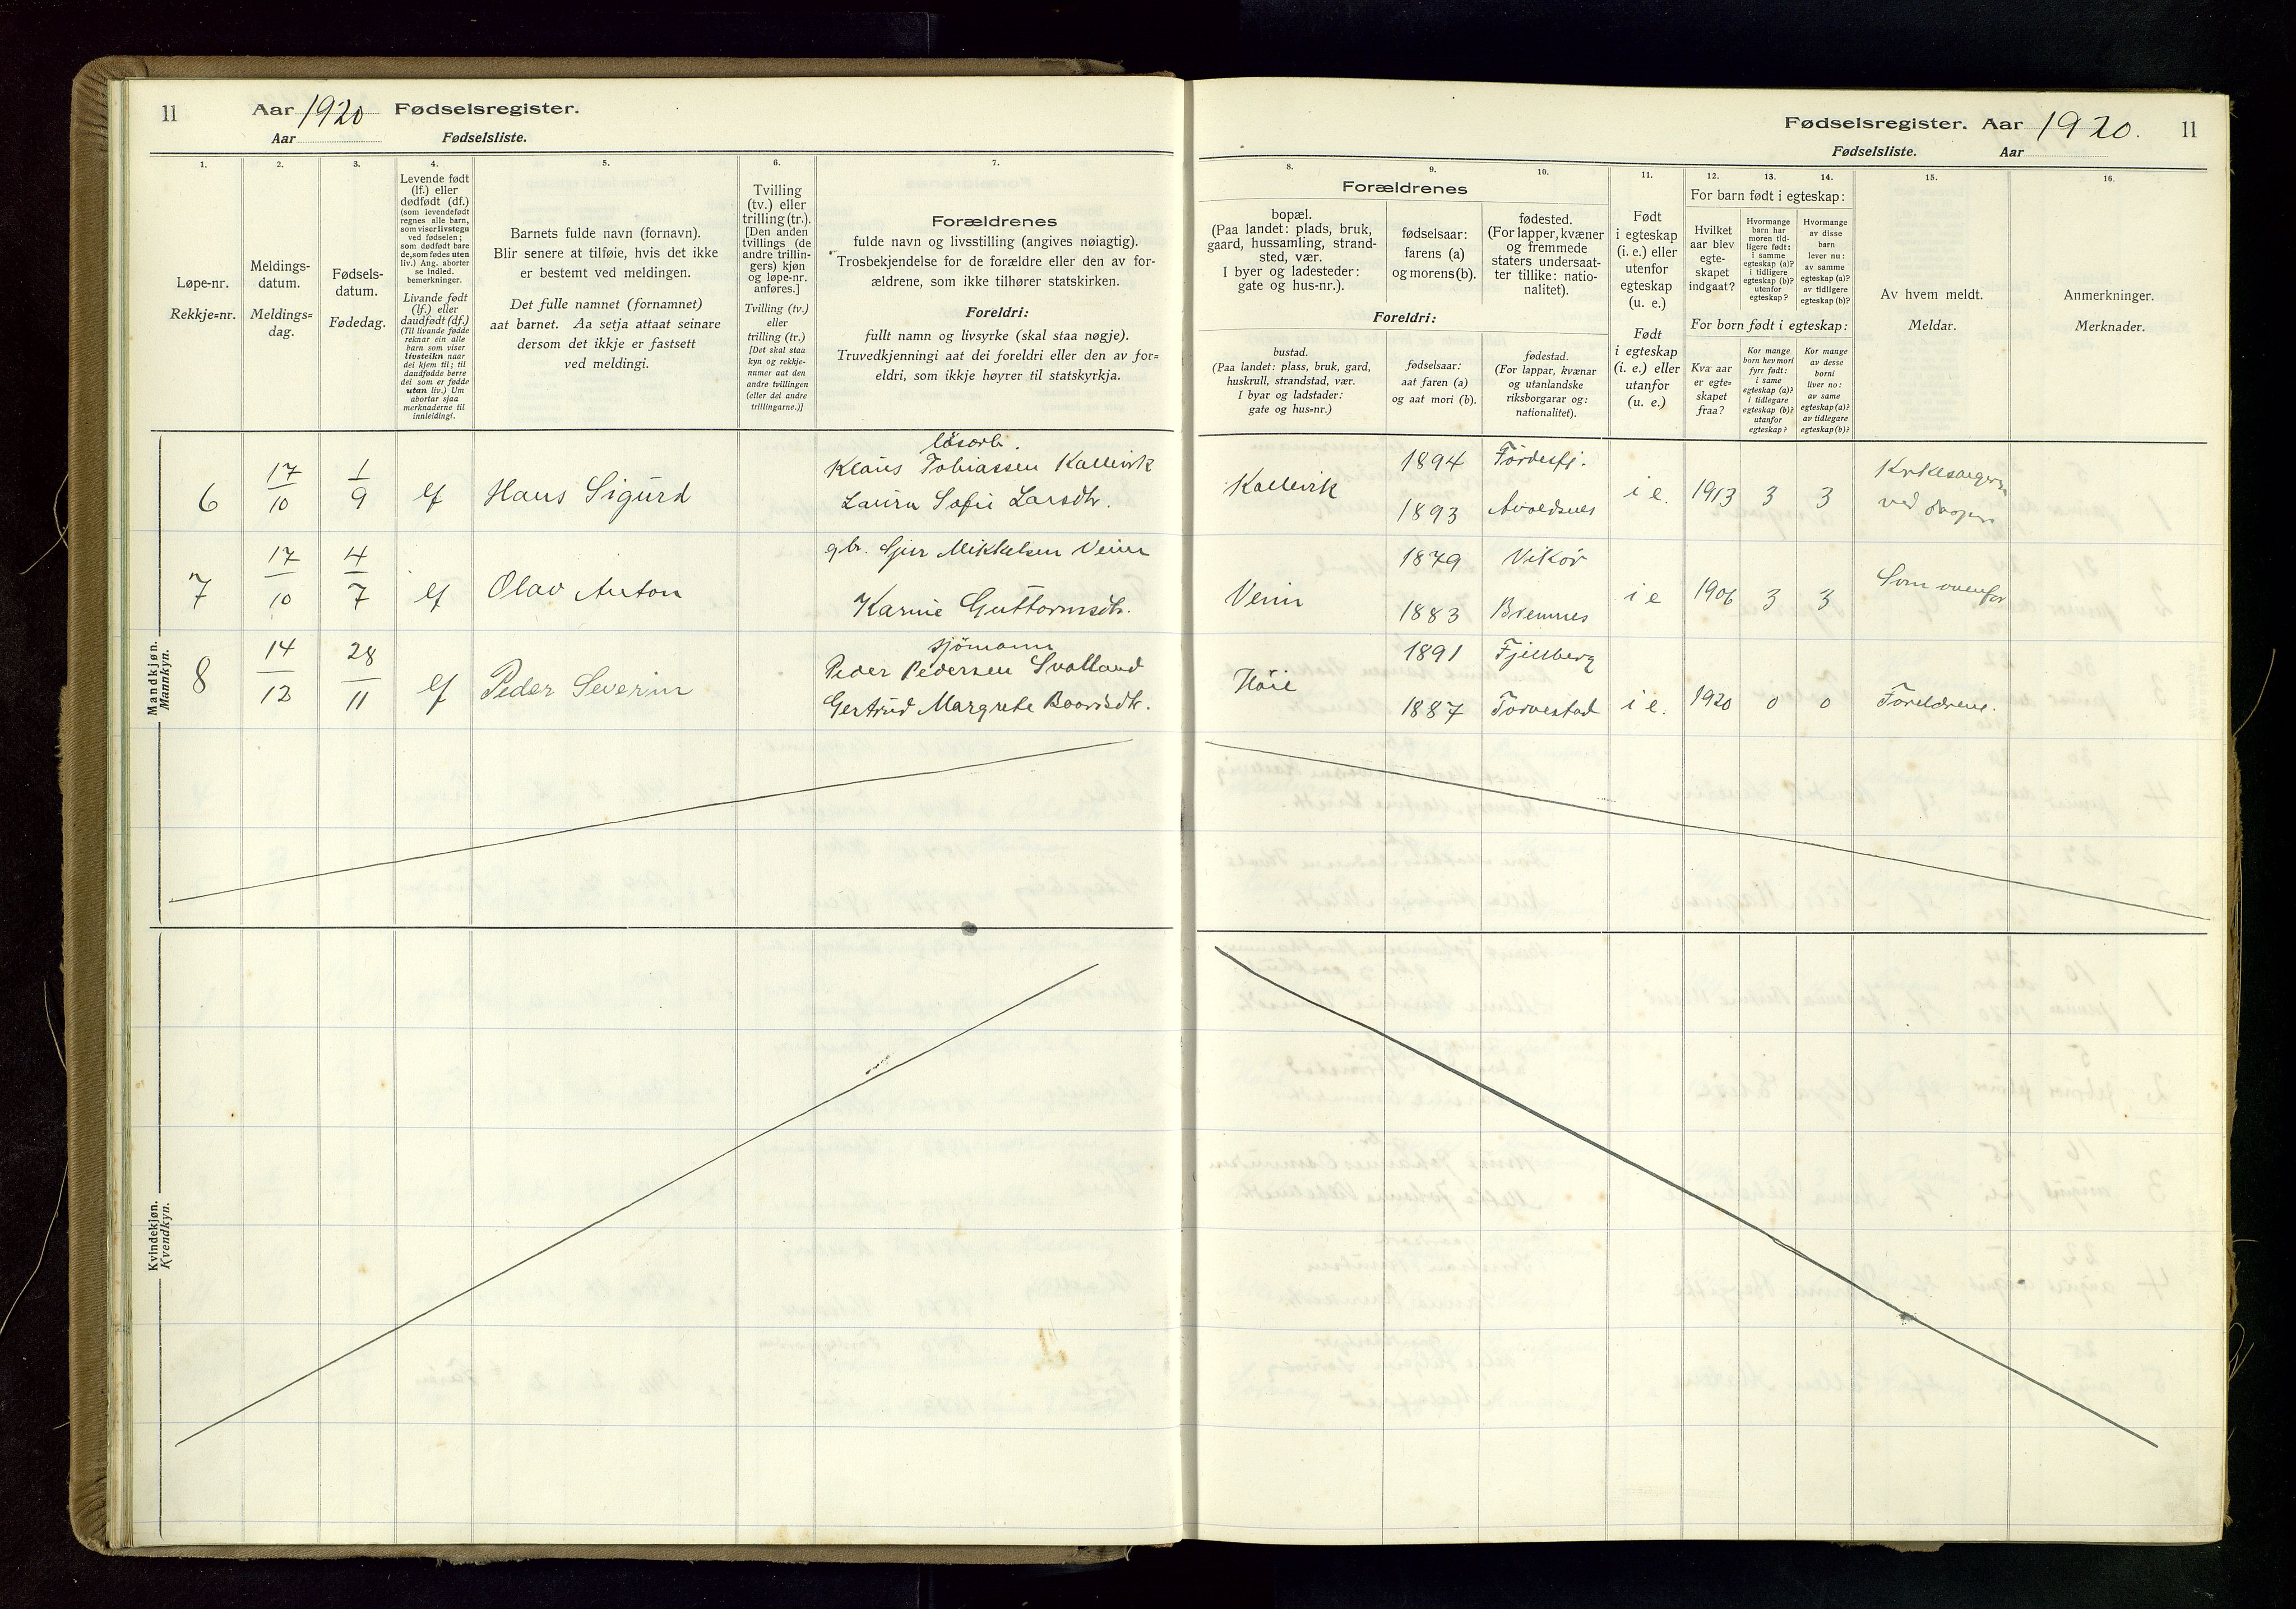 11
Aar 1920 Fødselsregister.
Aar Fødselsliste.
1.
2.
3.
4.
5.
6.
7.
Løpe-nr.
Rekkje=nr.
Meldings-
datum.
Meldings=
dag.
Fødsels-
datum.
Fødedag.
Levende født
(lf.) eller
dødfødt (df.)
(som levendefødt
regnes alle barn,
som viser livstegn
ved fødselen;
som dødfødt bare
de, som fødes uten
liv.) Ang. aborter
se indled.
bemerkninger.
Livande født
(lf.) eller
daudfødt (df.)
(Til livande fødde
reknar ein alle
barn som viser
livsteikn naar
dei kjem til; til
daudfødde berre
dei som er fødde
utan liv.) Um
abortar sjaa
merknaderne til
innleidingi.
Barnets fulde navn (fornavn).
Blir senere at tilføie, hvis det ikke
er bestemt ved meldingen.
Det fulle namnet (fornamnet)
aat barnet. Aa setja attaat seinare
dersom det ikkje er fastsett
ved meldingi.
Tvilling
(tv.) eller
trilling (tr.).
[Den anden
tvillings (de
andre trillin-
gers) kjøn
og løpe-nr.
anføres.]
Tvilling (tv.)
eller
trilling (tr.)
[Det skal staa
kyn og rekkje-
numer aat den
andre tvillingen
(eller dei andre
trillingarne.)]
Forældrenes
fulde navn og livsstilling (angives nøiagtig).
Trosbekjendelse for de forældre eller den av for-
ældrene, som ikke tilhører statskirken.
Foreldri:
fullt namn og livsyrke (skal staa nøgje).
Truvedkjenningi aat dei foreldri eller den av for=
eldri, som ikkje høyrer til statskyrkja.
Mandkjøn.
Mannkyn.
6 17/10 1/9 lf Hans Sigurd
løsarb.
Klaus Tobiassen Kallevik
Laura Sofie Larsdtr.
7 17/10 4/7 lf Olav Anton
gbr. Sjur Mikkelsen Veim
Karine Guttormsdtr.
8 14/12 28/11 lf Peder Severin
sjømann
Peder Pedersen Svolland
Gertrud Margrete Baardsdtr.
Kvindekjøn.
Kvendkyn.
Fødselsregister. Aar 1920. 11
Fødselsliste. Aar
8.
9.
10.
11.
12.
13.
14.
15.
16.
Forældrenes
bopæl.
(Paa landet: plads, bruk,
gaard, hussamling, strand-
sted, vær.
I byer og ladesteder:
gate og hus-nr.).
fødselsaar:
farens (a)
og morens (b).
fødested.
(For lapper, kvæner
og fremmede
staters undersaat-
ter tillike: natio-
nalitet).
Foreldri:
bustad.
(Paa landet: plass, bruk, gard,
huskrull, strandstad, vær.
I byar og ladstader:
gate og hus=nr.)
fødselsaar:
aat faren (a)
og aat mori (b).
fødestad.
(For lappar, kvænar
og utanlandske
riksborgarar og:
nationalitet).
Født
i egteskap
(i. e.) eller
utenfor
egteskap
(u. e.)
Født
i egteskap
(i. e.) eller
utanfor
(u. e.)
For barn født i egteskap:
Hvilket
aar blev
egte-
skapet
indgaat?
Hvormange
barn har
moren tid-
ligere født:
i samme
egteskap (a)?
i tidligere
egteskap (b)?
utenfor
egteskap?
Hvormange
av disse
barn
lever nu:
av samme
egteskap (a)?
av tidligere
egteskap (b)?
For born født i egteskap:
Kva aar
er egte=
skapet
fraa?
Kor mange
born hev mori
fyrr født:
i same
egteskap (a)?
i tidlegare
egteskap (b)?
utanfor
egteskap?
Kor mange
av desse
borni
liver no:
av same
egteskap (a)?
av tidlegare
egteskap (b)?
Av hvem meldt.
Meldar.
Anmerkninger.
Merknader.
Kallevik 1894 Fördesfj.
1893 Avaldsnes i e. 1913 3 3
Veim 1879 Vikör
1883 Bremnes i e 1906 3 3 Som ovenfor
Höie 1891 Fjellberg
1887 Torvestad i e. 1920 0 0 Foreldrene.